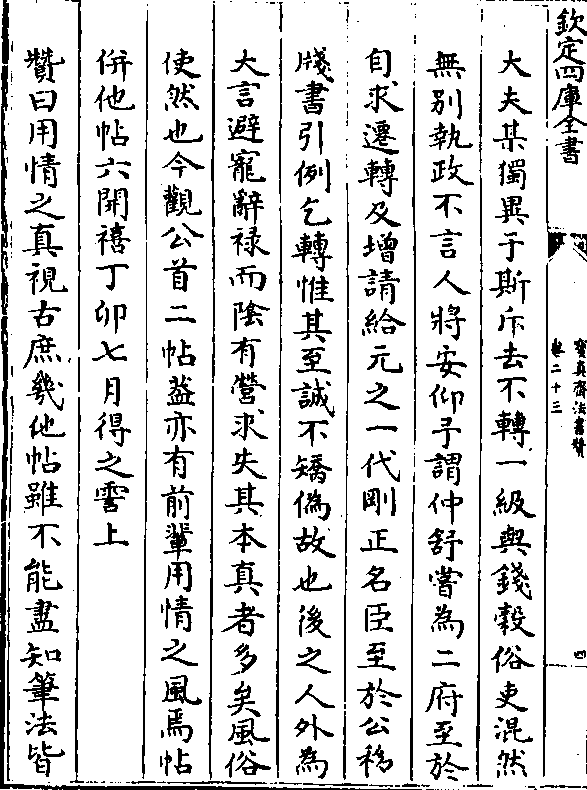 欽定四庫全書
寶真齋法書贊
卷二十三
四
大夫某獨異于斯斥去不轉一級與錢穀俗吏混然
無別執政不言人將安仰予謂仲舒嘗為二府至於
自求遷轉及增請給元之一代剛正名臣至於公移
牋書引例乞轉惟其至誠不矯偽故也後之人外為
大言避寵辭祿而陰有營求失其本真者多矣風俗
使然也今觀公首二帖益亦有前輩用情之風焉帖
併他帖六開禧丁卯七月得之霅上
贊曰用情之真視古庶幾他帖雖不能盡知筆法皆